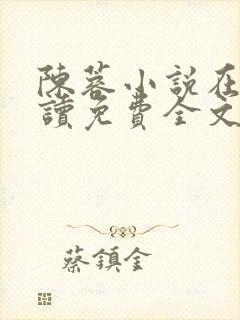 陳蓉小說在
讀免費全文
蔡鎮金